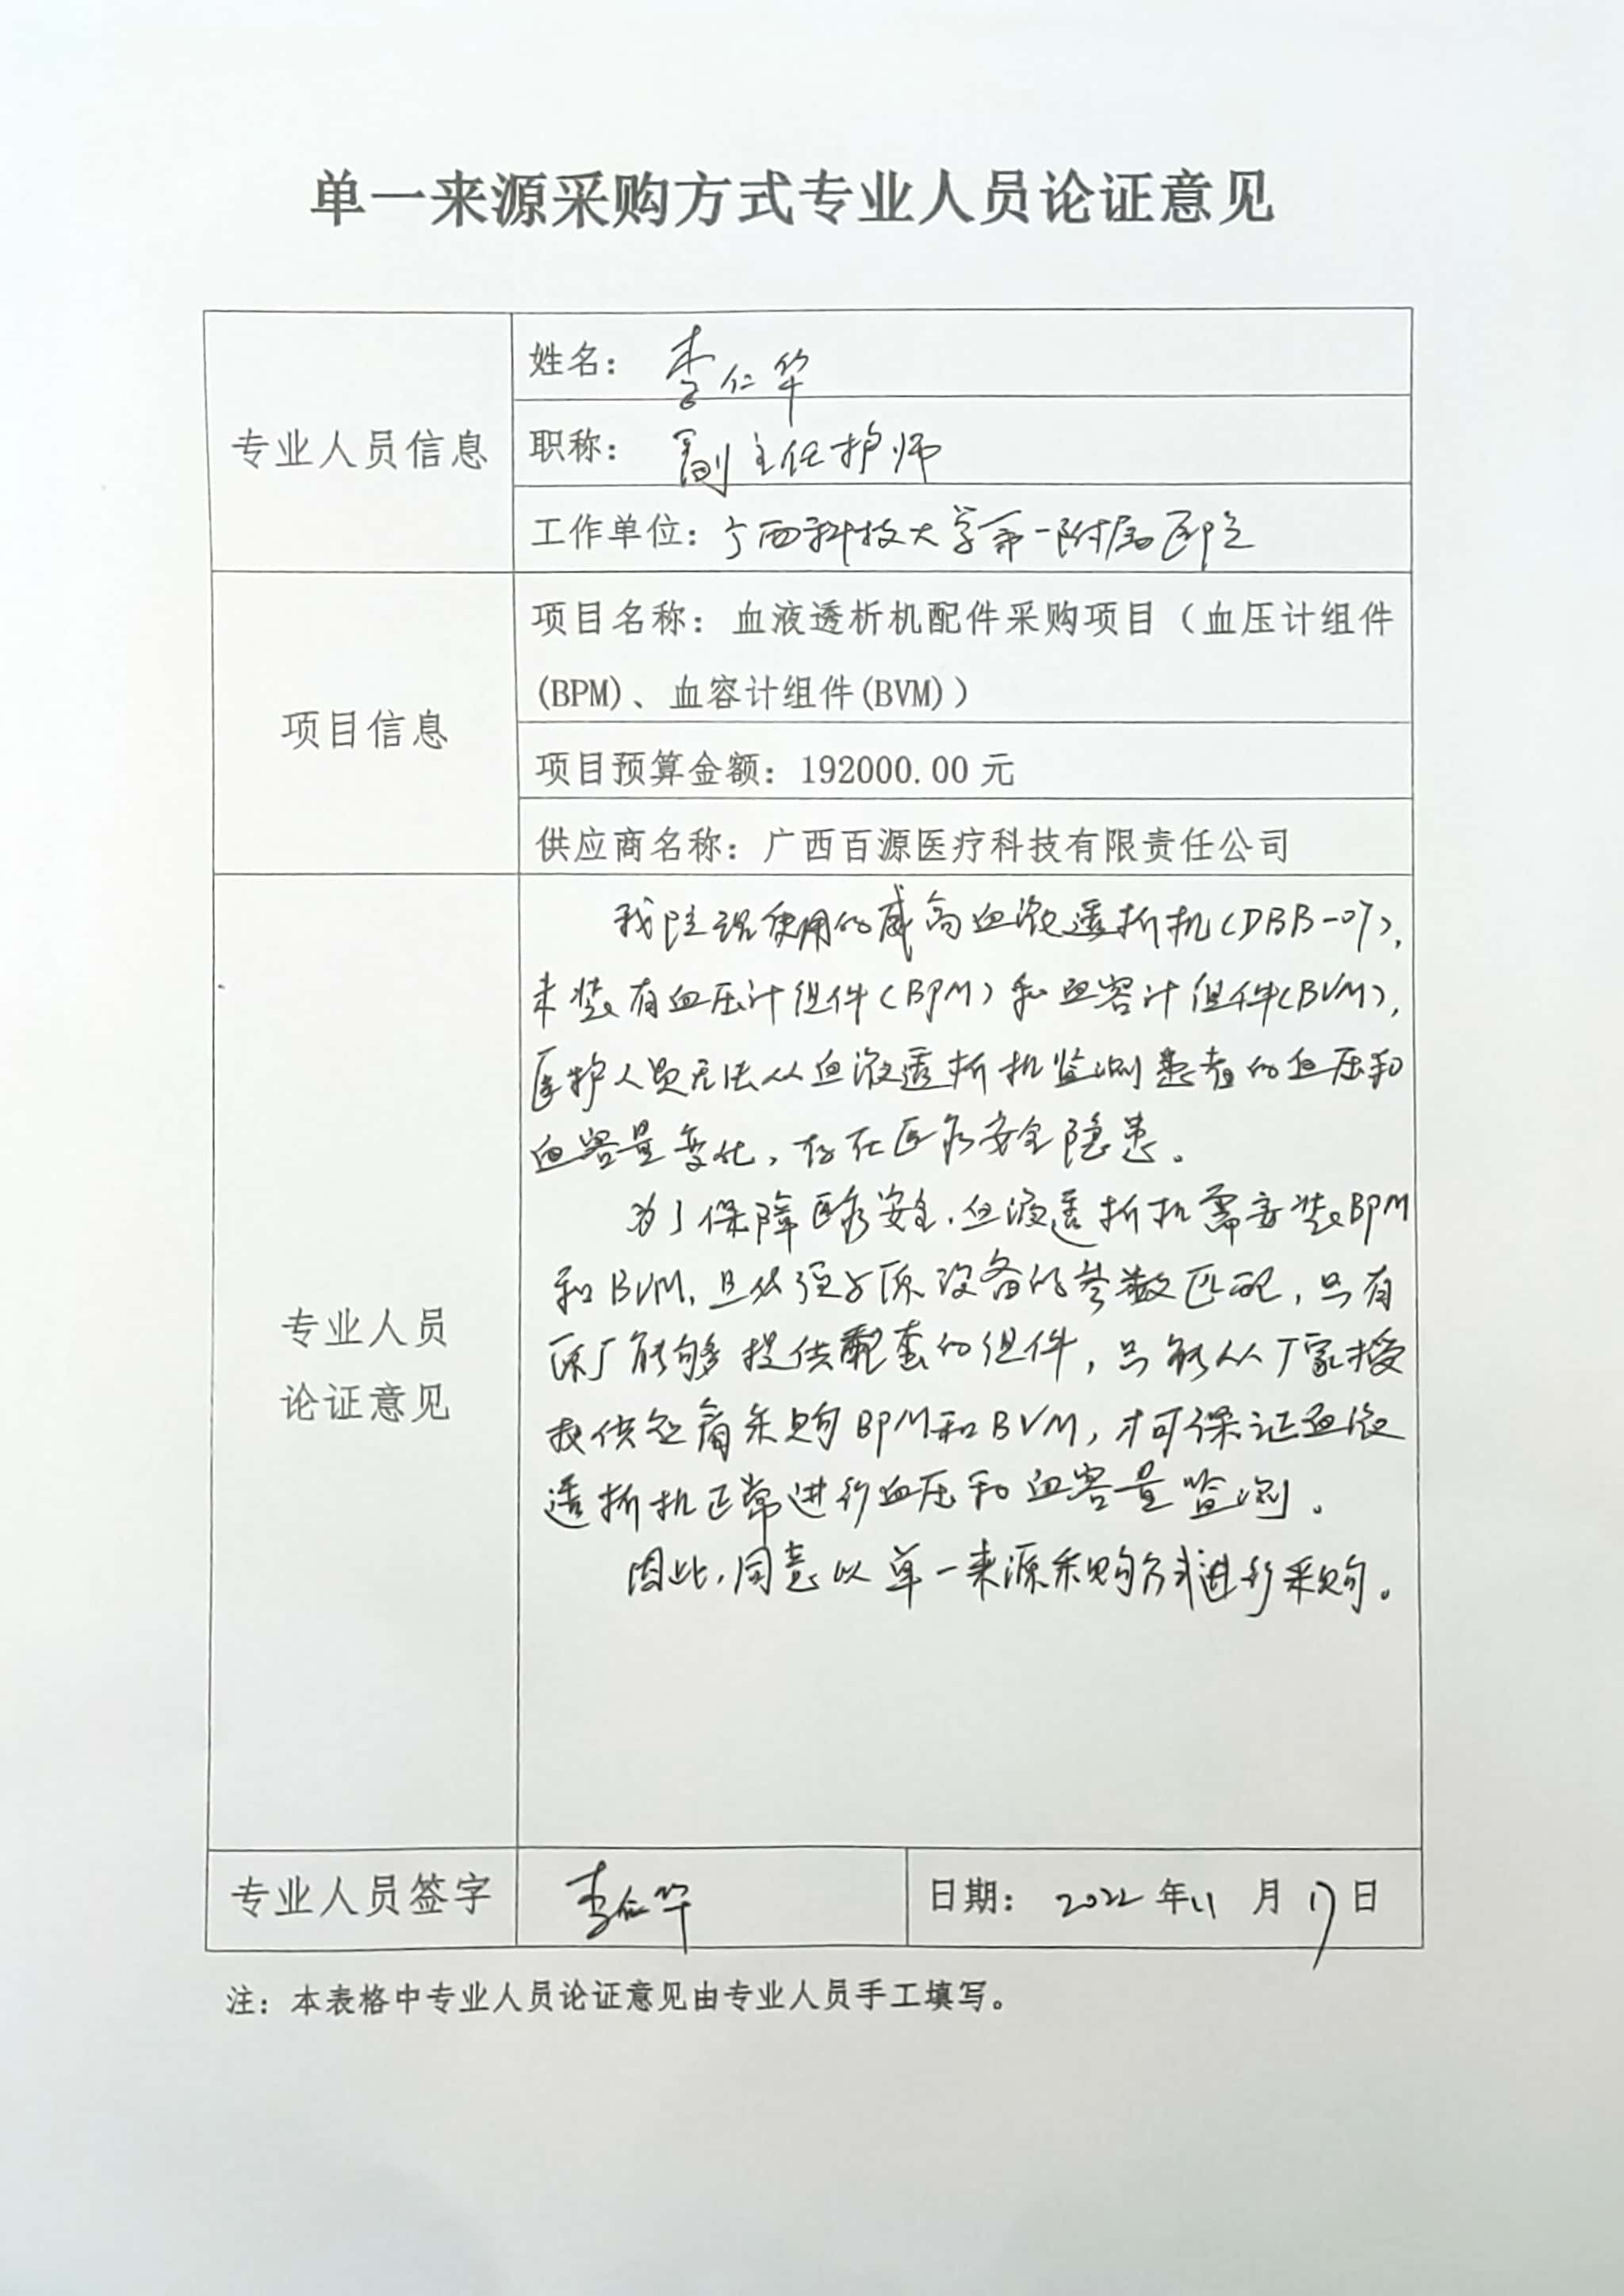 单一来源采购方式专业人员论证意见
专业人员信息
姓名：李仁华
职称：副主任护师
工作单位：广西科技大学第一附属医院
项目信息
项目名称：血液透析机配件采购项目（血压计组件
(BPM)、血容计组件(BVM)）
项目预算金额：192000.00元
供应商名称：广西百源医疗科技有限责任公司
专业人员
论证意见
我院现使用的威高血液透析机(DBB-07),
未装有血压计组件(BPM)和血容计组件(BVM),
医护人员无法从血液透析机监测患者的血压和
血容量变化，存在医疗安全隐患。
为了保障医疗安全，血液透析机需安装BPM
和BVM，且必须与原设备的参数匹配，只有
原厂能够提供配套的组件，只能从厂家授
权供应商采购BPM和BVM，才可保证血液
透析机正常进行血压和血容量监测。
因此，同意以单一来源采购方式进行采购。
专业人员签字
李仁华
日期：2022年11月17日
注：本表格中专业人员论证意见由专业人员手工填写。